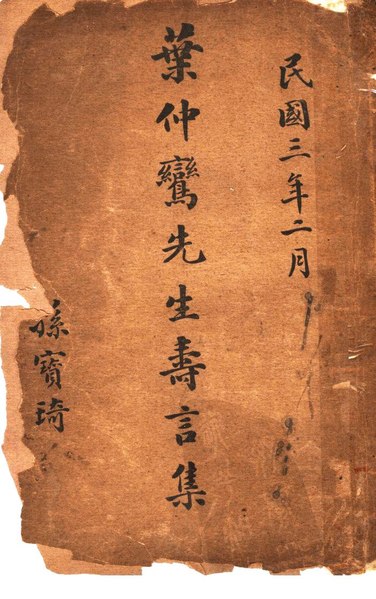 民國三年二月
葉仲鸞先生壽言集
孫寶琦